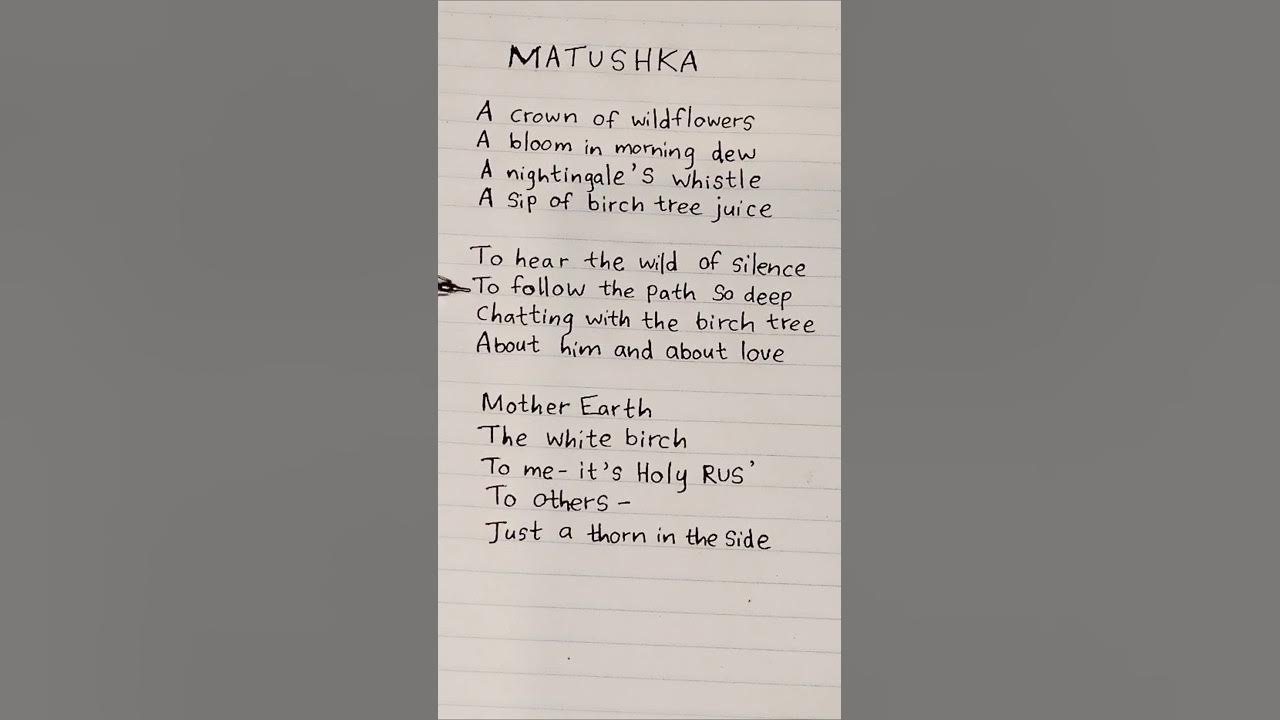 MATUSHKA
A crown of wildflowers
A bloom in morning dew
A nightingale's whistle
A sip of birch tree juice
To hear the wild of silence
To follow the path so deep
Chatting with the birch tree
About him and about love
Mother Earth
The white birch
To me - it's Holy RUS'
To others -
Just a thorn in the side